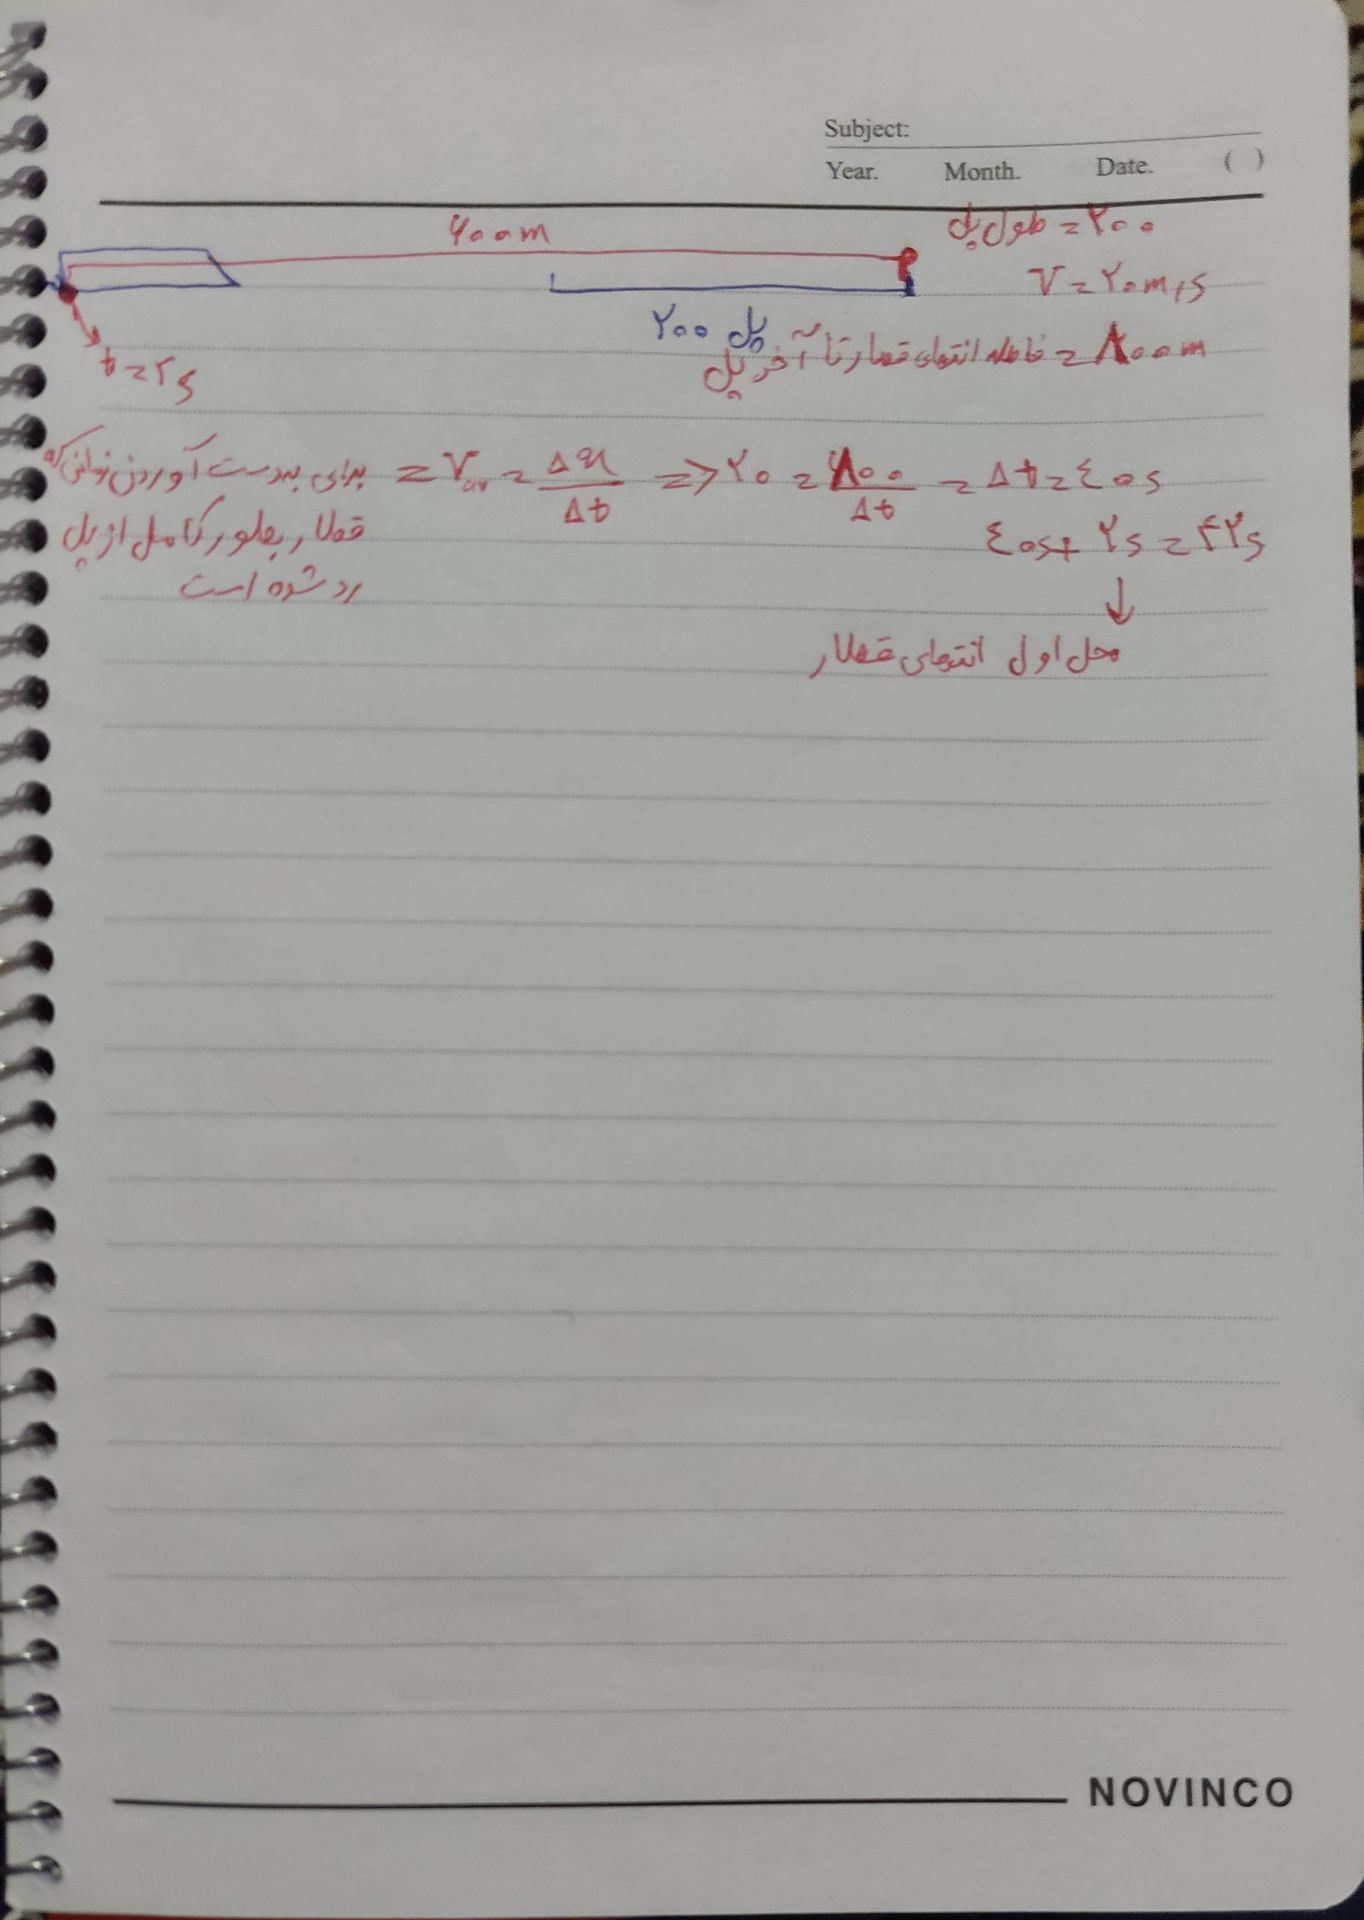 Subject:
Year. Month. Date. ( )
۶۰۰m
طول پل = ۲۰۰
V = ۲۰m/s
پل ۲۰۰
فاصله انتهای قطار تا آخر پل = ۸۰۰m
t = ۲s
برای بدست آوردن زمانی که قطار بطور کامل از پل رد شده است = Vav = Δx/Δt => ۲۰ = ۸۰۰/Δt = Δt = ٤۰s
٤۰s + ۲s = ۴۲s
↓
محل اول انتهای قطار
NOVINCO